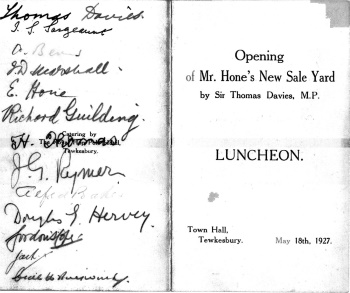 Thomas Davies.
I. S. Sargeaunt
A. Benn
J D Marshall.
E. Hone
Richard Guilding.
Catering by
The
Hall,
Tewkesbury.
J. G. Rymer
Douglas G. Hervey.
Jack
Opening
of Mr. Hone's New Sale Yard
by Sir Thomas Davies, M.P.
LUNCHEON.
Town Hall,
Tewkesbury.
May 18th, 1927.